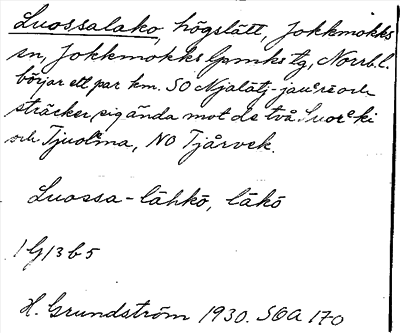 Luossalako, högslätt, Jokkmokks
sn, Jokkmokks lpmks tg, Norrb.l.
börjar ett par km. SO Njalátj-jaure och
sträcker sig ända mot de två Suorki
och Tjuolma, NO Tjårvek.
Luossa-lähkō, läkō
19/3 b 5
H. Grundström 1930. SOA 170